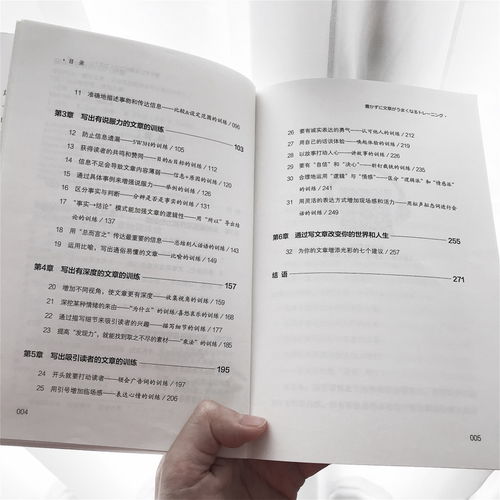 · 目 录
11 准确地描述事物和传达信息——比较&设定范围的训练/096
第3章 写出有说服力的文章的训练 103
12 防止信息遗漏——5W3H的训练/105
13 获得读者的共鸣和赞同——目的&目标的训练/112
14 信息不足会导致文章内容薄弱——信息+原因的训练/120
15 通过具体事例来增强说服力——举例的训练/126
16 区分事实与判断——分辨是否是事实的训练/131
17 “事实→结论”模式能加强文章的逻辑性——用“所以”导出结
论的训练/137
18 用“总而言之”传达最重要的信息——总结别人话语的训练/143
19 运用比喻,写出通俗易懂的文章——比喻的训练/149
第4章 写出有深度的文章的训练 157
20 增加不同视角,使文章更有深度——收集视角的训练/159
21 深挖某种情绪的来由——“为什么”的训练/喜怒哀乐的训练/168
22 通过描写细节来吸引读者的兴趣——描写细节的训练/177
23 提高“发现力”,就能找到取之不尽的素材——“乘法”的训练/185
第5章 写出吸引读者的文章的训练 195
24 开头就要打动读者——领会广告词的训练/197
25 用引号增加临场感——表达心情的训练/206
004
書かずに文章がうまくなるトレーニング·
26 要有诚实表达的勇气——认可他人的训练/212
27 用自己的话谈体验——唤起体验的训练/219
28 以故事打动人心——讲故事的训练/226
29 要有“自信”和“决心”——斩钉截铁的训练/231
30 合理地运用“逻辑”与“情感”——区分“逻辑派”和“情感派”
的训练/241
31 用灵活的表达方式增加现场感和活力——用拟声拟态词进行会
话的训练/249
第6章 通过写文章改变你的世界和人生 255
32 为你的文章增添光彩的七个建议/257
结 语 271
005